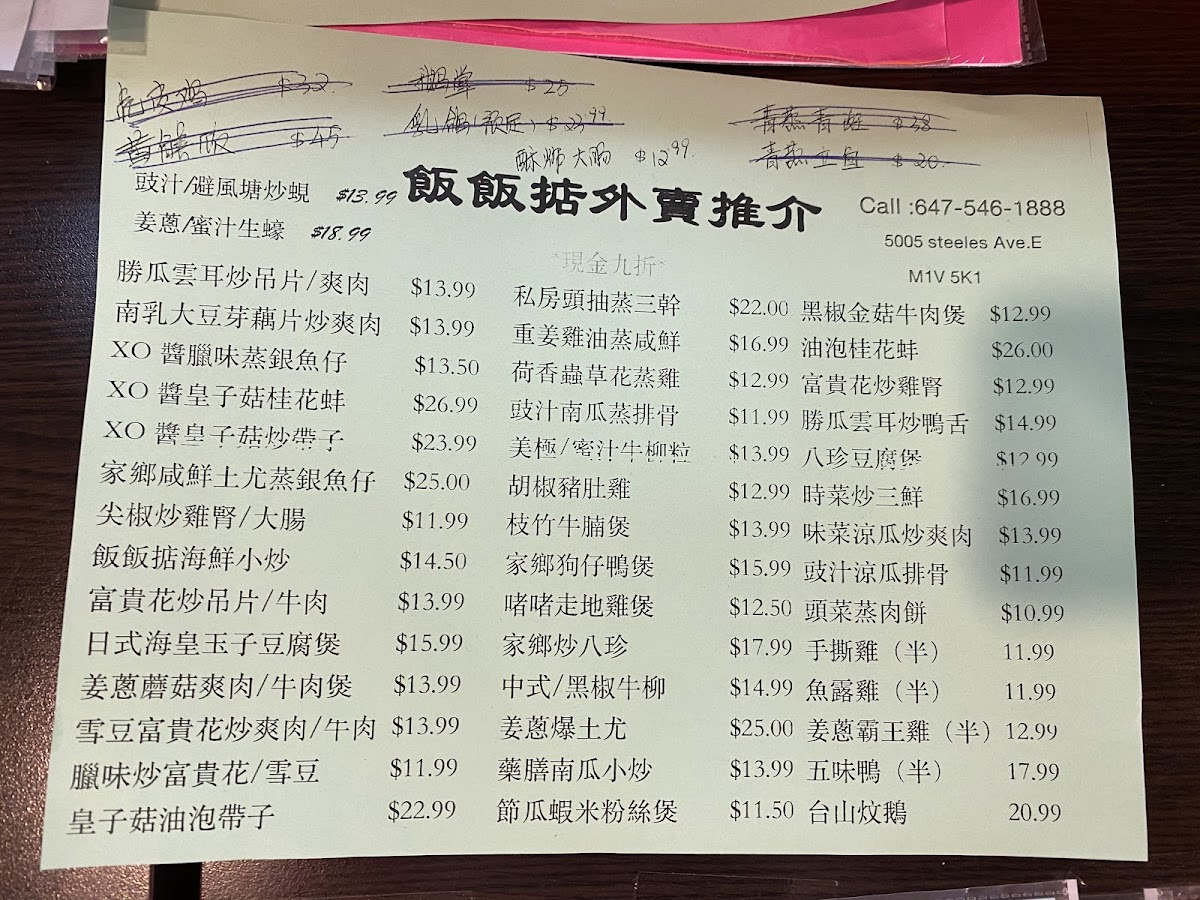 $32
$20
$45
乳鴿（預定）$23.99
$38
酥炸大腸 $12.99
$20
豉汁/避風塘炒蜆 $13.99
姜蔥/蜜汁生蠔 $18.99
飯飯掂外賣推介
Call :647-546-1888
5005 steeles Ave.E
M1V 5K1
*現金九折*
勝瓜雲耳炒吊片/爽肉 $13.99
南乳大豆芽藕片炒爽肉 $13.99
XO 醬臘味蒸銀魚仔 $13.50
XO 醬皇子菇桂花蚌 $26.99
XO 醬皇子菇炒帶子 $23.99
家鄉咸鮮土尤蒸銀魚仔 $25.00
尖椒炒雞腎/大腸 $11.99
飯飯掂海鮮小炒 $14.50
富貴花炒吊片/牛肉 $13.99
日式海皇玉子豆腐煲 $15.99
姜蔥蘑菇爽肉/牛肉煲 $13.99
雪豆富貴花炒爽肉/牛肉 $13.99
臘味炒富貴花/雪豆 $11.99
皇子菇油泡帶子 $22.99
私房頭抽蒸三幹 $22.00
重姜雞油蒸咸鮮 $16.99
荷香蟲草花蒸雞 $12.99
豉汁南瓜蒸排骨 $11.99
美極/蜜汁牛柳粒 $13.99
胡椒豬肚雞 $12.99
枝竹牛腩煲 $13.99
家鄉狗仔鴨煲 $15.99
啫啫走地雞煲 $12.50
家鄉炒八珍 $17.99
中式/黑椒牛柳 $14.99
姜蔥爆土尤 $25.00
藥膳南瓜小炒 $13.99
節瓜蝦米粉絲煲 $11.50
黑椒金菇牛肉煲 $12.99
油泡桂花蚌 $26.00
富貴花炒雞腎 $12.99
勝瓜雲耳炒鴨舌 $14.99
八珍豆腐煲 $12.99
時菜炒三鮮 $16.99
味菜涼瓜炒爽肉 $13.99
豉汁涼瓜排骨 $11.99
頭菜蒸肉餅 $10.99
手撕雞（半） 11.99
魚露雞（半） 11.99
姜蔥霸王雞（半） 12.99
五味鴨（半） 17.99
台山炆鵝 20.99